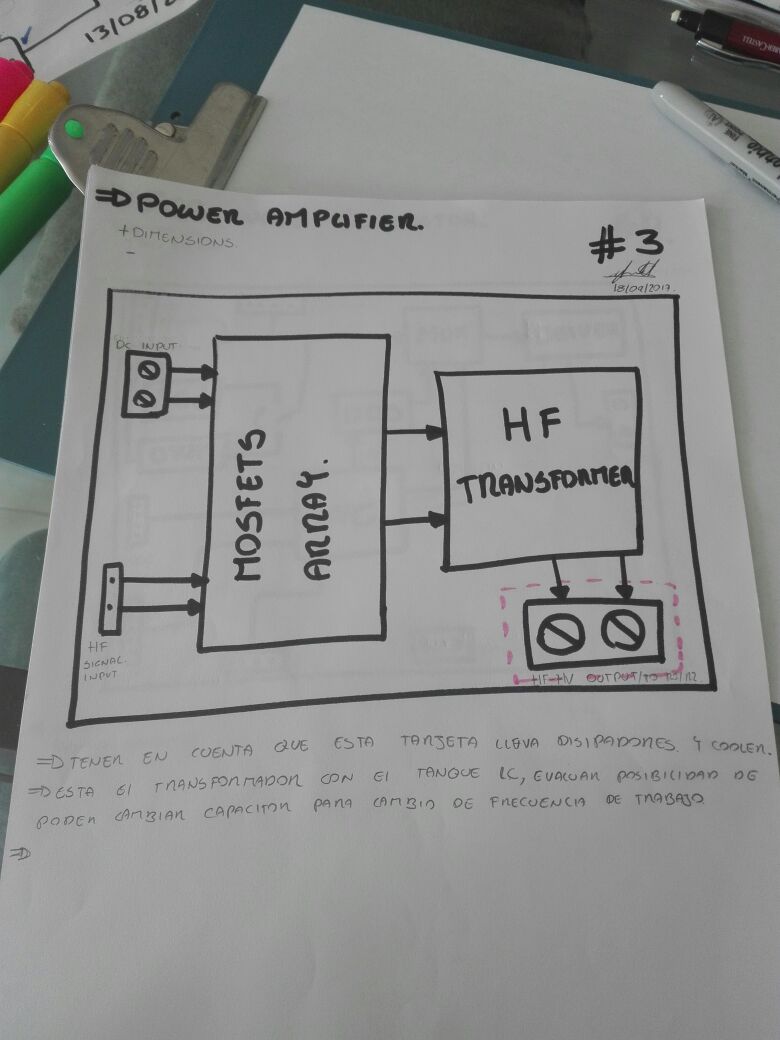 13/08/2
⇒ POWER AMPLIFIER.
+ DIMENSIONS.
-
#3
18/09/2017.
DC INPUT
MOSFETS
ARRAY.
HF
TRANSFORMER
HF
SIGNAL
INPUT
HF-HV OUTPUT/TO
⇒ TENER EN CUENTA QUE ESTA TARJETA LLEVA DISIPADORES Y COOLER.
⇒ ESTA EL TRANSFORMADOR CON EL TANQUE LC, EVALUAR POSIBILIDAD DE
PODER CAMBIAR CAPACITOR PARA CAMBIO DE FRECUENCIA DE TRABAJO.
⇒